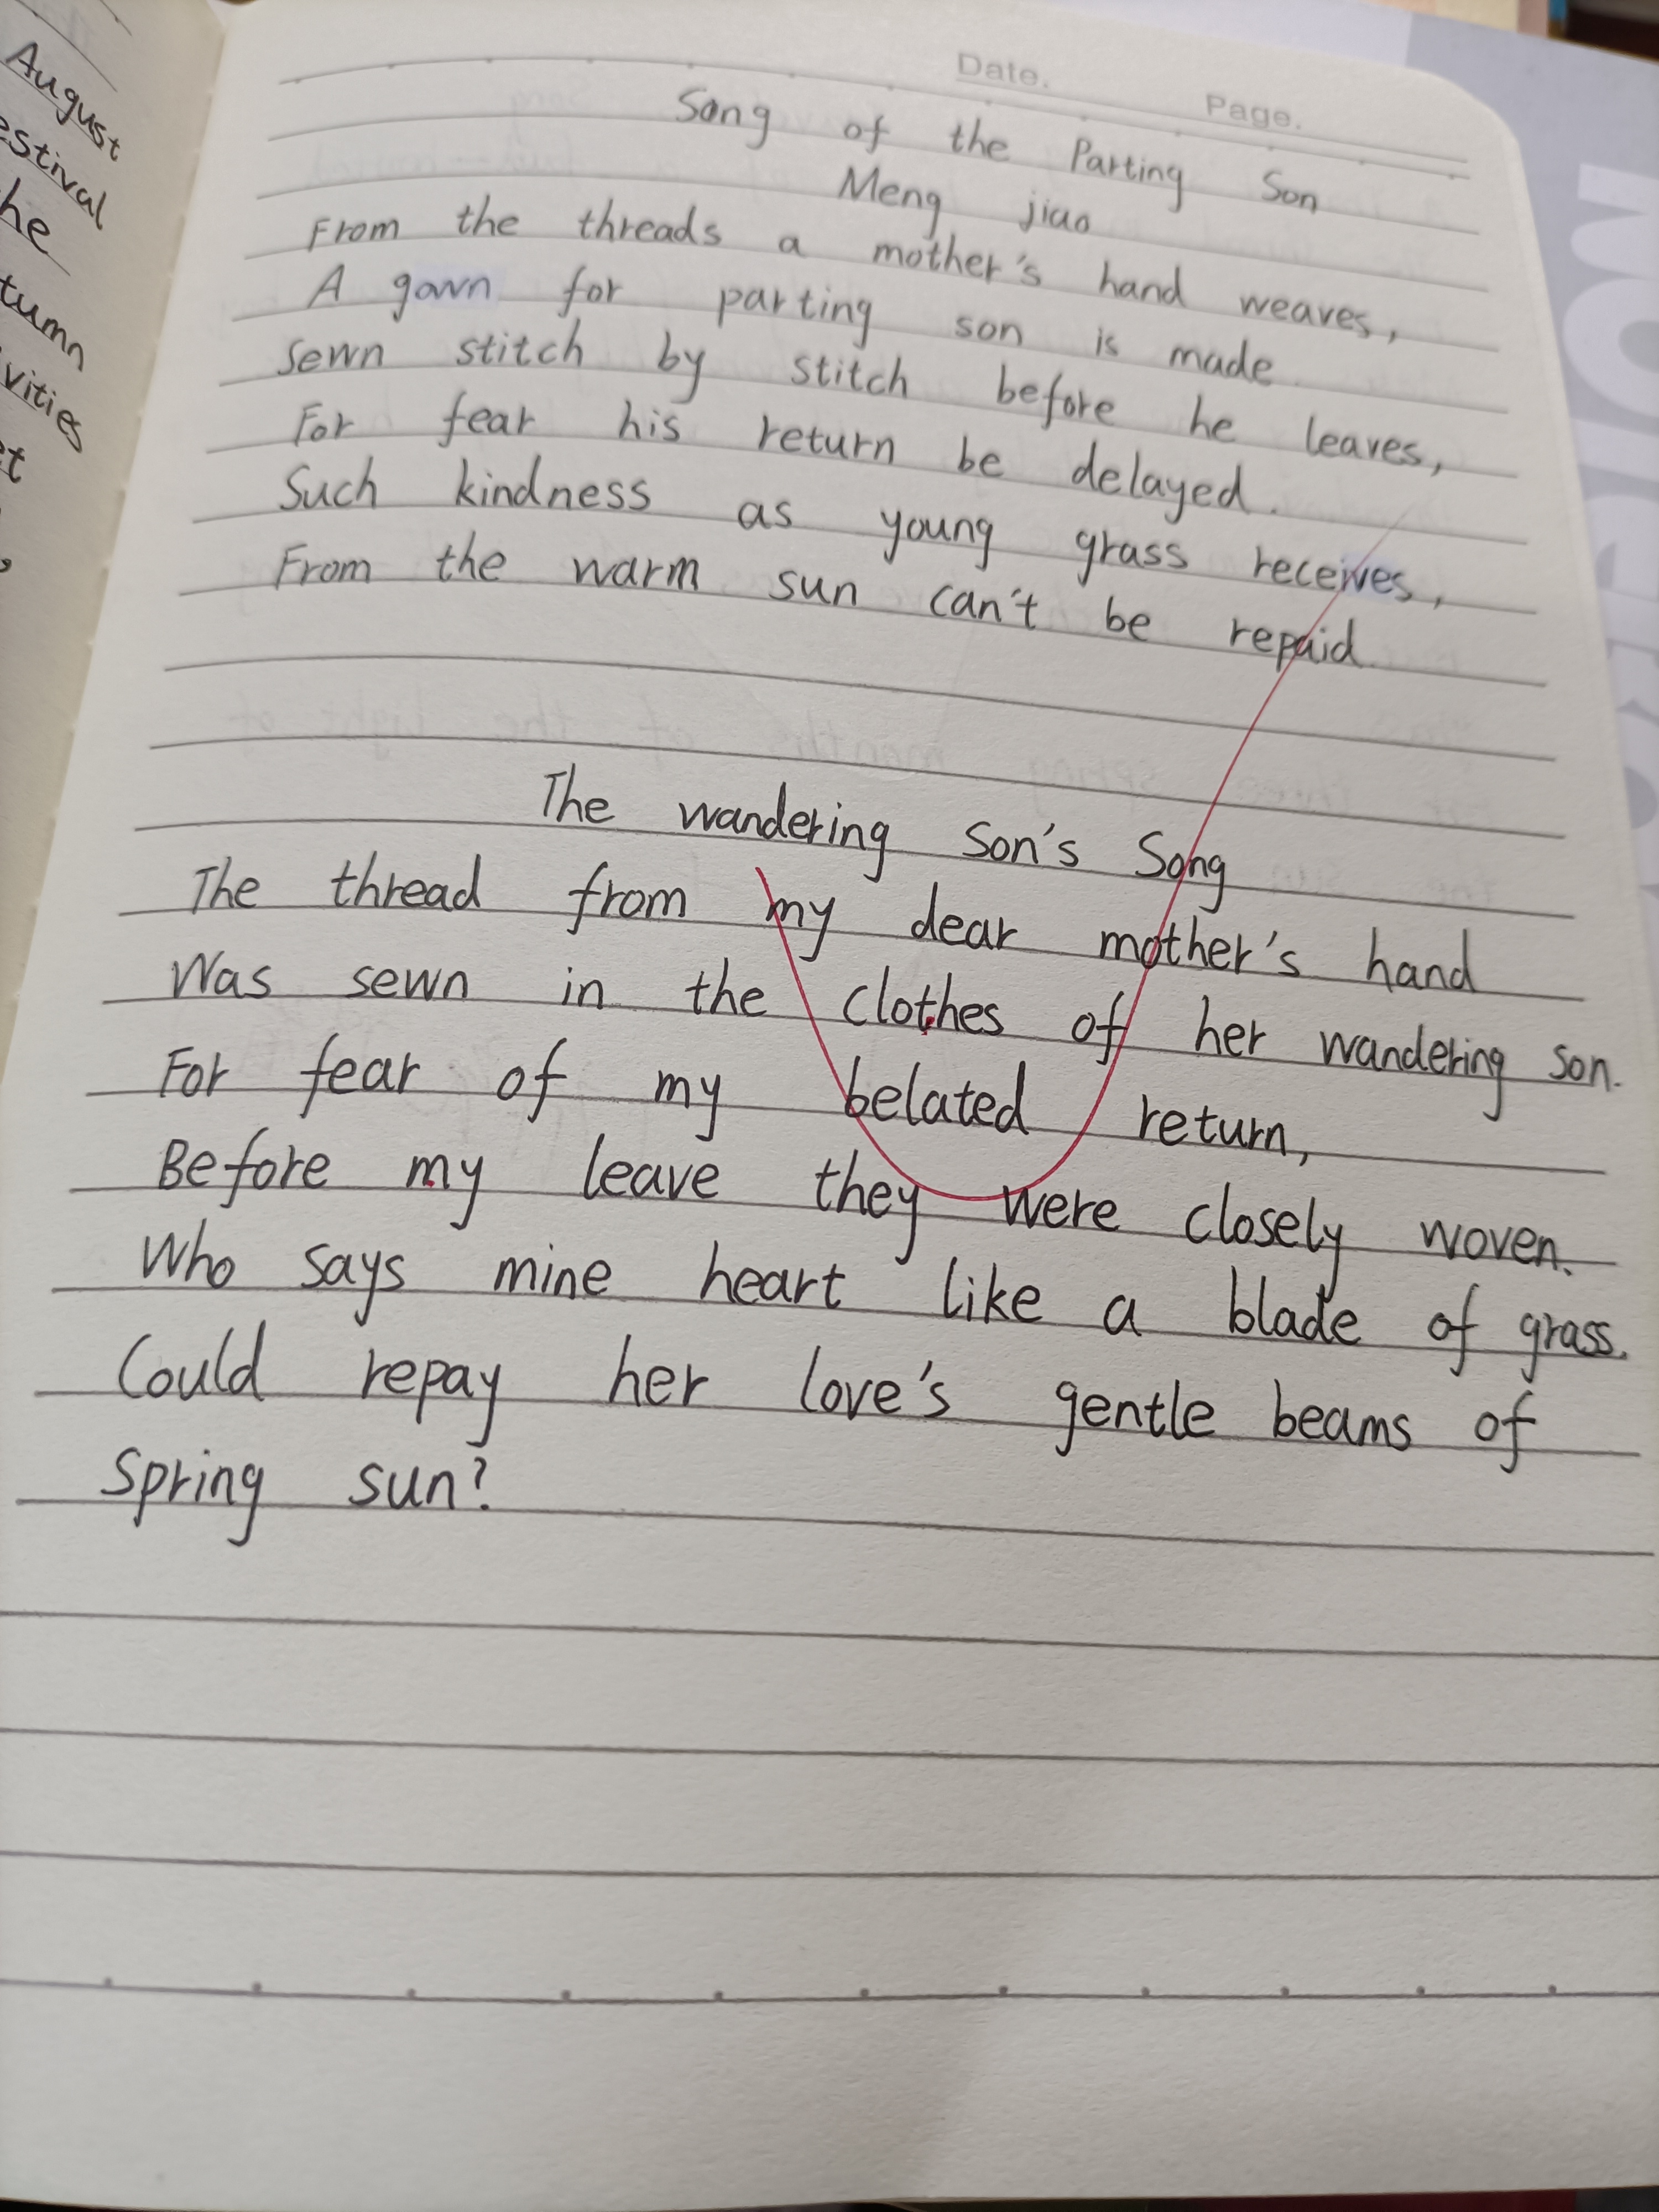 August
estival
he
tumn
vities
et
Date.
Page.
Song of the Parting Son
Meng jiao
From the threads a mother's hand weaves,
A gown for parting son is made
Sewn stitch by stitch before he leaves,
For fear his return be delayed.
Such kindness as young grass receives,
From the warm sun can't be repaid.
The wandering Son's Song
The thread from my dear mother's hand
Was sewn in the clothes of her wandering son.
For fear of my belated return,
Before my leave they were closely woven.
Who says mine heart like a blade of grass.
Could repay her love's gentle beams of
spring sun?